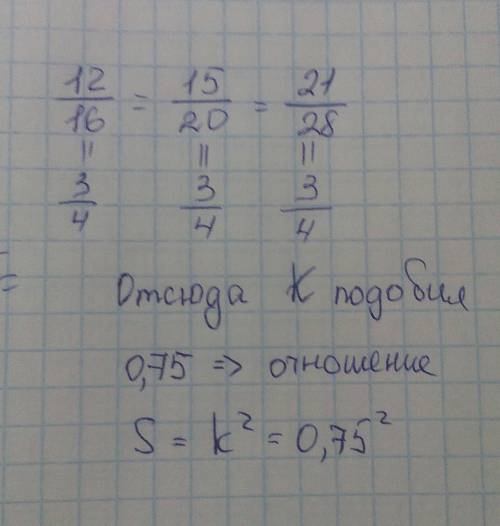 12/16 = 15/20 = 21/28
= = =
3/4 3/4 3/4
=
Отсюда K подобия
0,75 => отношение
S = k² = 0,75²